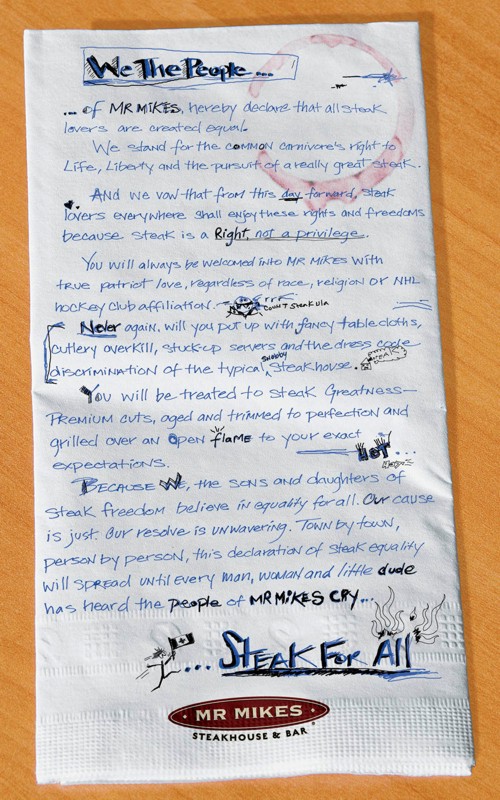 We The People...
... of MR MIKES, hereby declare that all steak
lovers are created equal.
We stand for the common carnivore's right to
Life, Liberty and the pursuit of a really great steak.
And we vow that from this day forward, steak
lovers everywhere shall enjoy these rights and freedoms
because steak is a Right, not a privilege.
You will always be welcomed into MR MIKES with
true patriot love, regardless of race, religion or NHL
hockey club affiliation. rrr
COUNT STEAKULA
Never again, will you put up with fancy tablecloths,
cutlery overkill, stuck-up servers and the dress code
discrimination of the typical snobby steakhouse. STEAK
You will be treated to Steak Greatness—
Premium cuts, aged and trimmed to perfection and
grilled over an open flame to your exact
HOT...
expectations.
Because We, the sons and daughters of
steak freedom believe in equality for all. Our cause
is just. Our resolve is unwavering. Town by town,
person by person, this declaration of steak equality
will spread until every man, woman and little dude
has heard the people of MR MIKES CRY...
... STEAK FOR All
MR MIKES
STEAKHOUSE & BAR